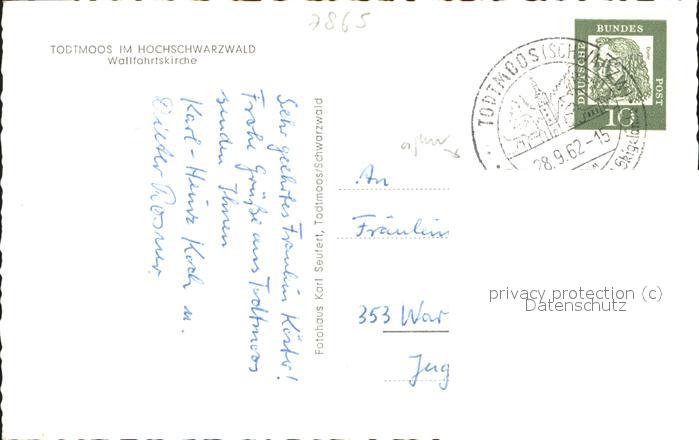 7865
TODTMOOS IM HOCHSCHWARZWALD
Wallfahrtskirche
Sehr geehrtes Fräulein Köster!
Frohe Grüße aus Todtmoos
senden Ihnen
Karl-Heinz Koch u.
Dieter Rosner
Fotohaus Karl Seufert, Todtmoos/Schwarzwald
DEUTSCHE BUNDES POST
10
TODTMOOS (SCHWARZW)
28.9.62-15
An
Fräulein
353 War
Jug
privacy protection (c)
Datenschutz